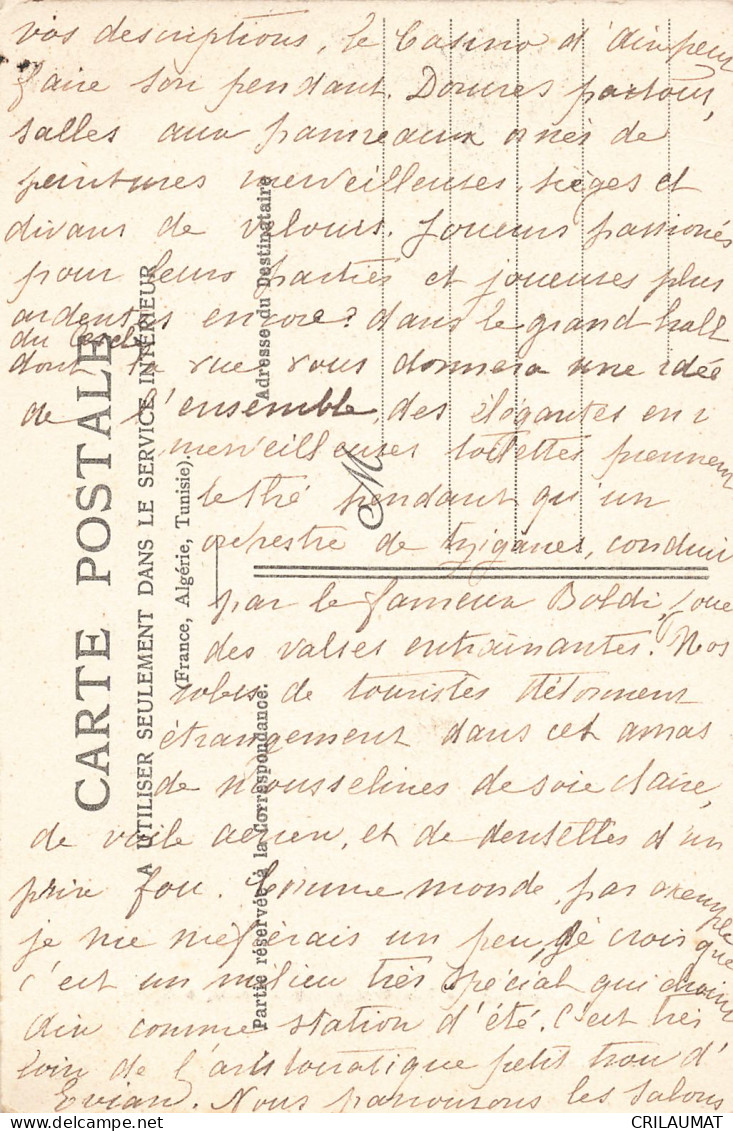 vos descriptions, le Casino d'Aix peut
faire son pendant. Dorures partout,
salles aux panneaux ornés de
peintures merveilleuses, sièges et
divans de velours. Joueurs passionés
pour leurs parties et joueuses plus
ardentes encore? dans le grand hall
du Cercle
dont la vue vous donnera une idée
de l'ensemble, des élégantes en
merveilleuses toilettes prennent
le thé pendant qu'un
orchestre de tziganes, conduit
par le fameux Boldi, joue
des valses entrainantes. Nos
robes de touristes détonnent
étrangement dans cet amas
de mousselines de soie claire,
de voile aérien, et de dentelles d'un
prix fou. Comme monde, par exemple
je me méfierais un peu, je crois que
c'est un milieu très spécial qui choisit
Aix comme station d'été. C'est très
loin de l'aristocratique petit trou d'
Evian. Nous parcourons les salons
CARTE POSTALE
A UTILISER SEULEMENT DANS LE SERVICE INTÉRIEUR
(France, Algérie, Tunisie)
Partie réservée à la Correspondance.
Adresse du Destinataire
M
CRILAUMAT